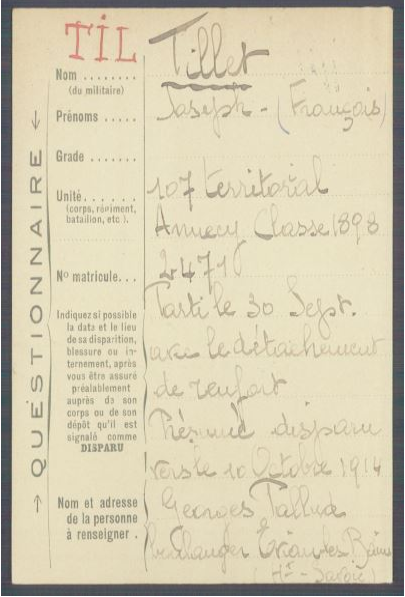 TIL
Tillet
Nom ........
(du militaire)
Joseph - (François)
Prénoms .....
Grade .......
107 territorial
Unité ........
(corps, régiment,
bataillon, etc ).
Annecy Classe 1898
24710
Nº matricule...
Parti le 30 Sept.
avec le détachement
de renfort
Présumé disparu
vers le 10 Octobre 1914
Indiquez si possible
la data et le lieu
de sa disparition,
blessure ou in-
ternement, après
vous être assuré
préalablement
auprès de son
corps ou de son
dépôt qu'il est
signalé comme
DISPARU
Nom et adresse
de la personne
à renseigner .
Georges
boulanger Evian les Bains
(Hte - Savoie)
→ QUESTIONNAIRE ←